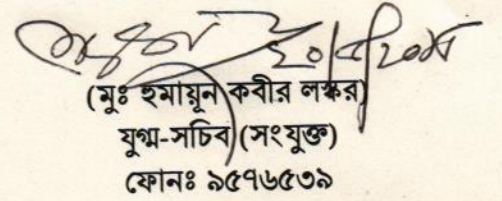 (মুঃ হুমায়ূন কবীর লস্কর)
যুগ্ম-সচিব (সংযুক্ত)
ফোনঃ ৯৫৭৬৫৩৯